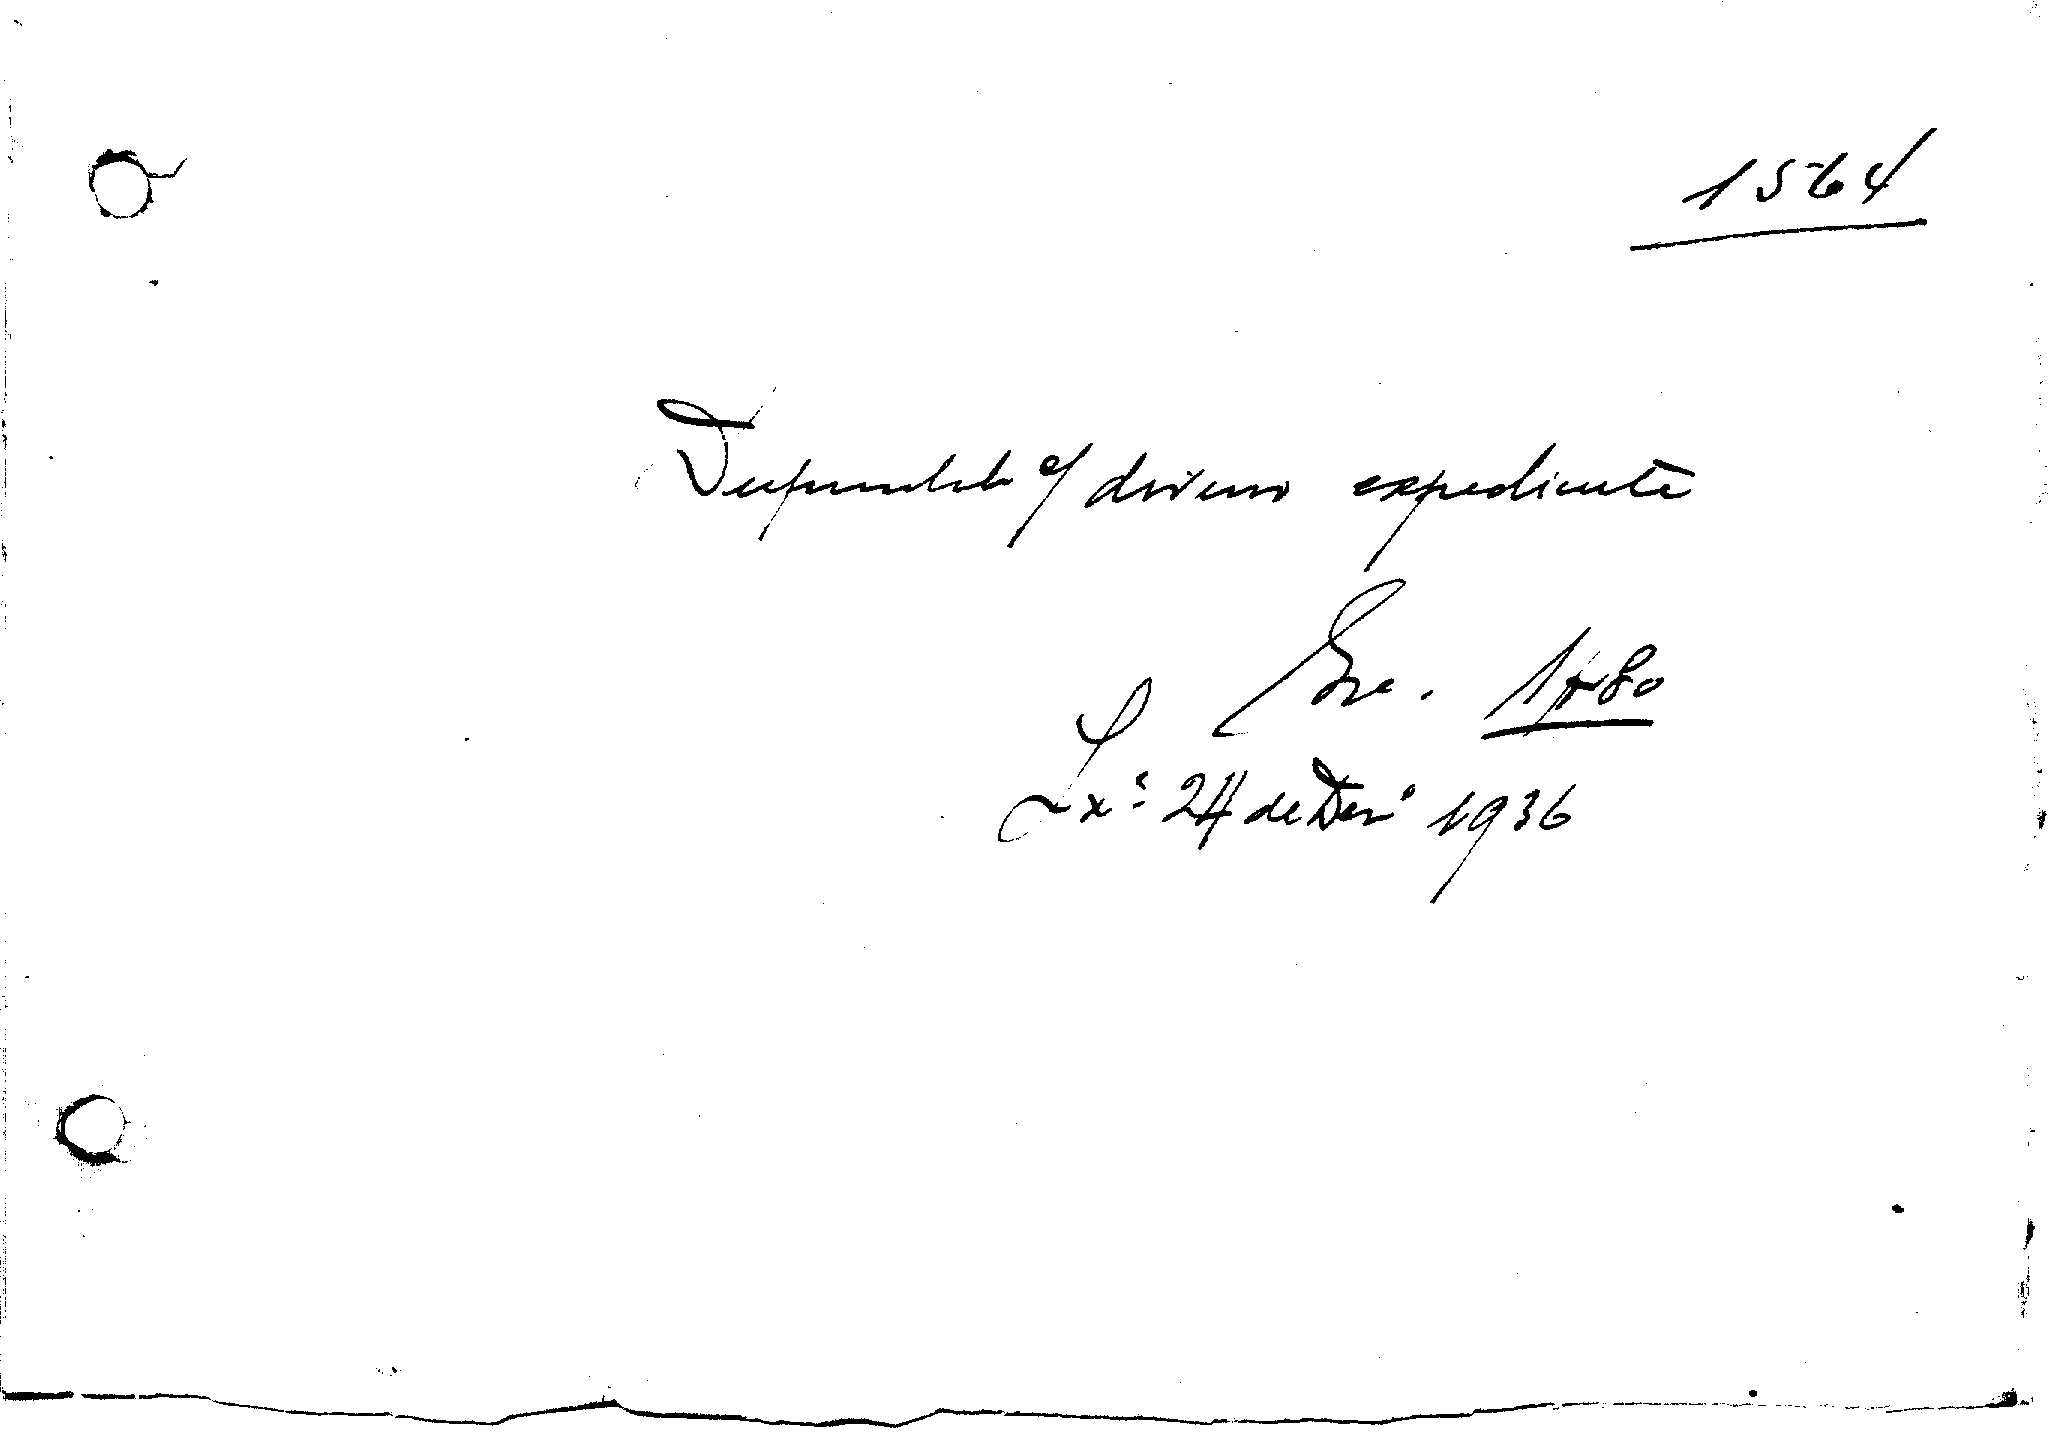 1564
Despendido c/ diverso expediente
Esc. 1$80
Lxª 24 de Dezº 1936